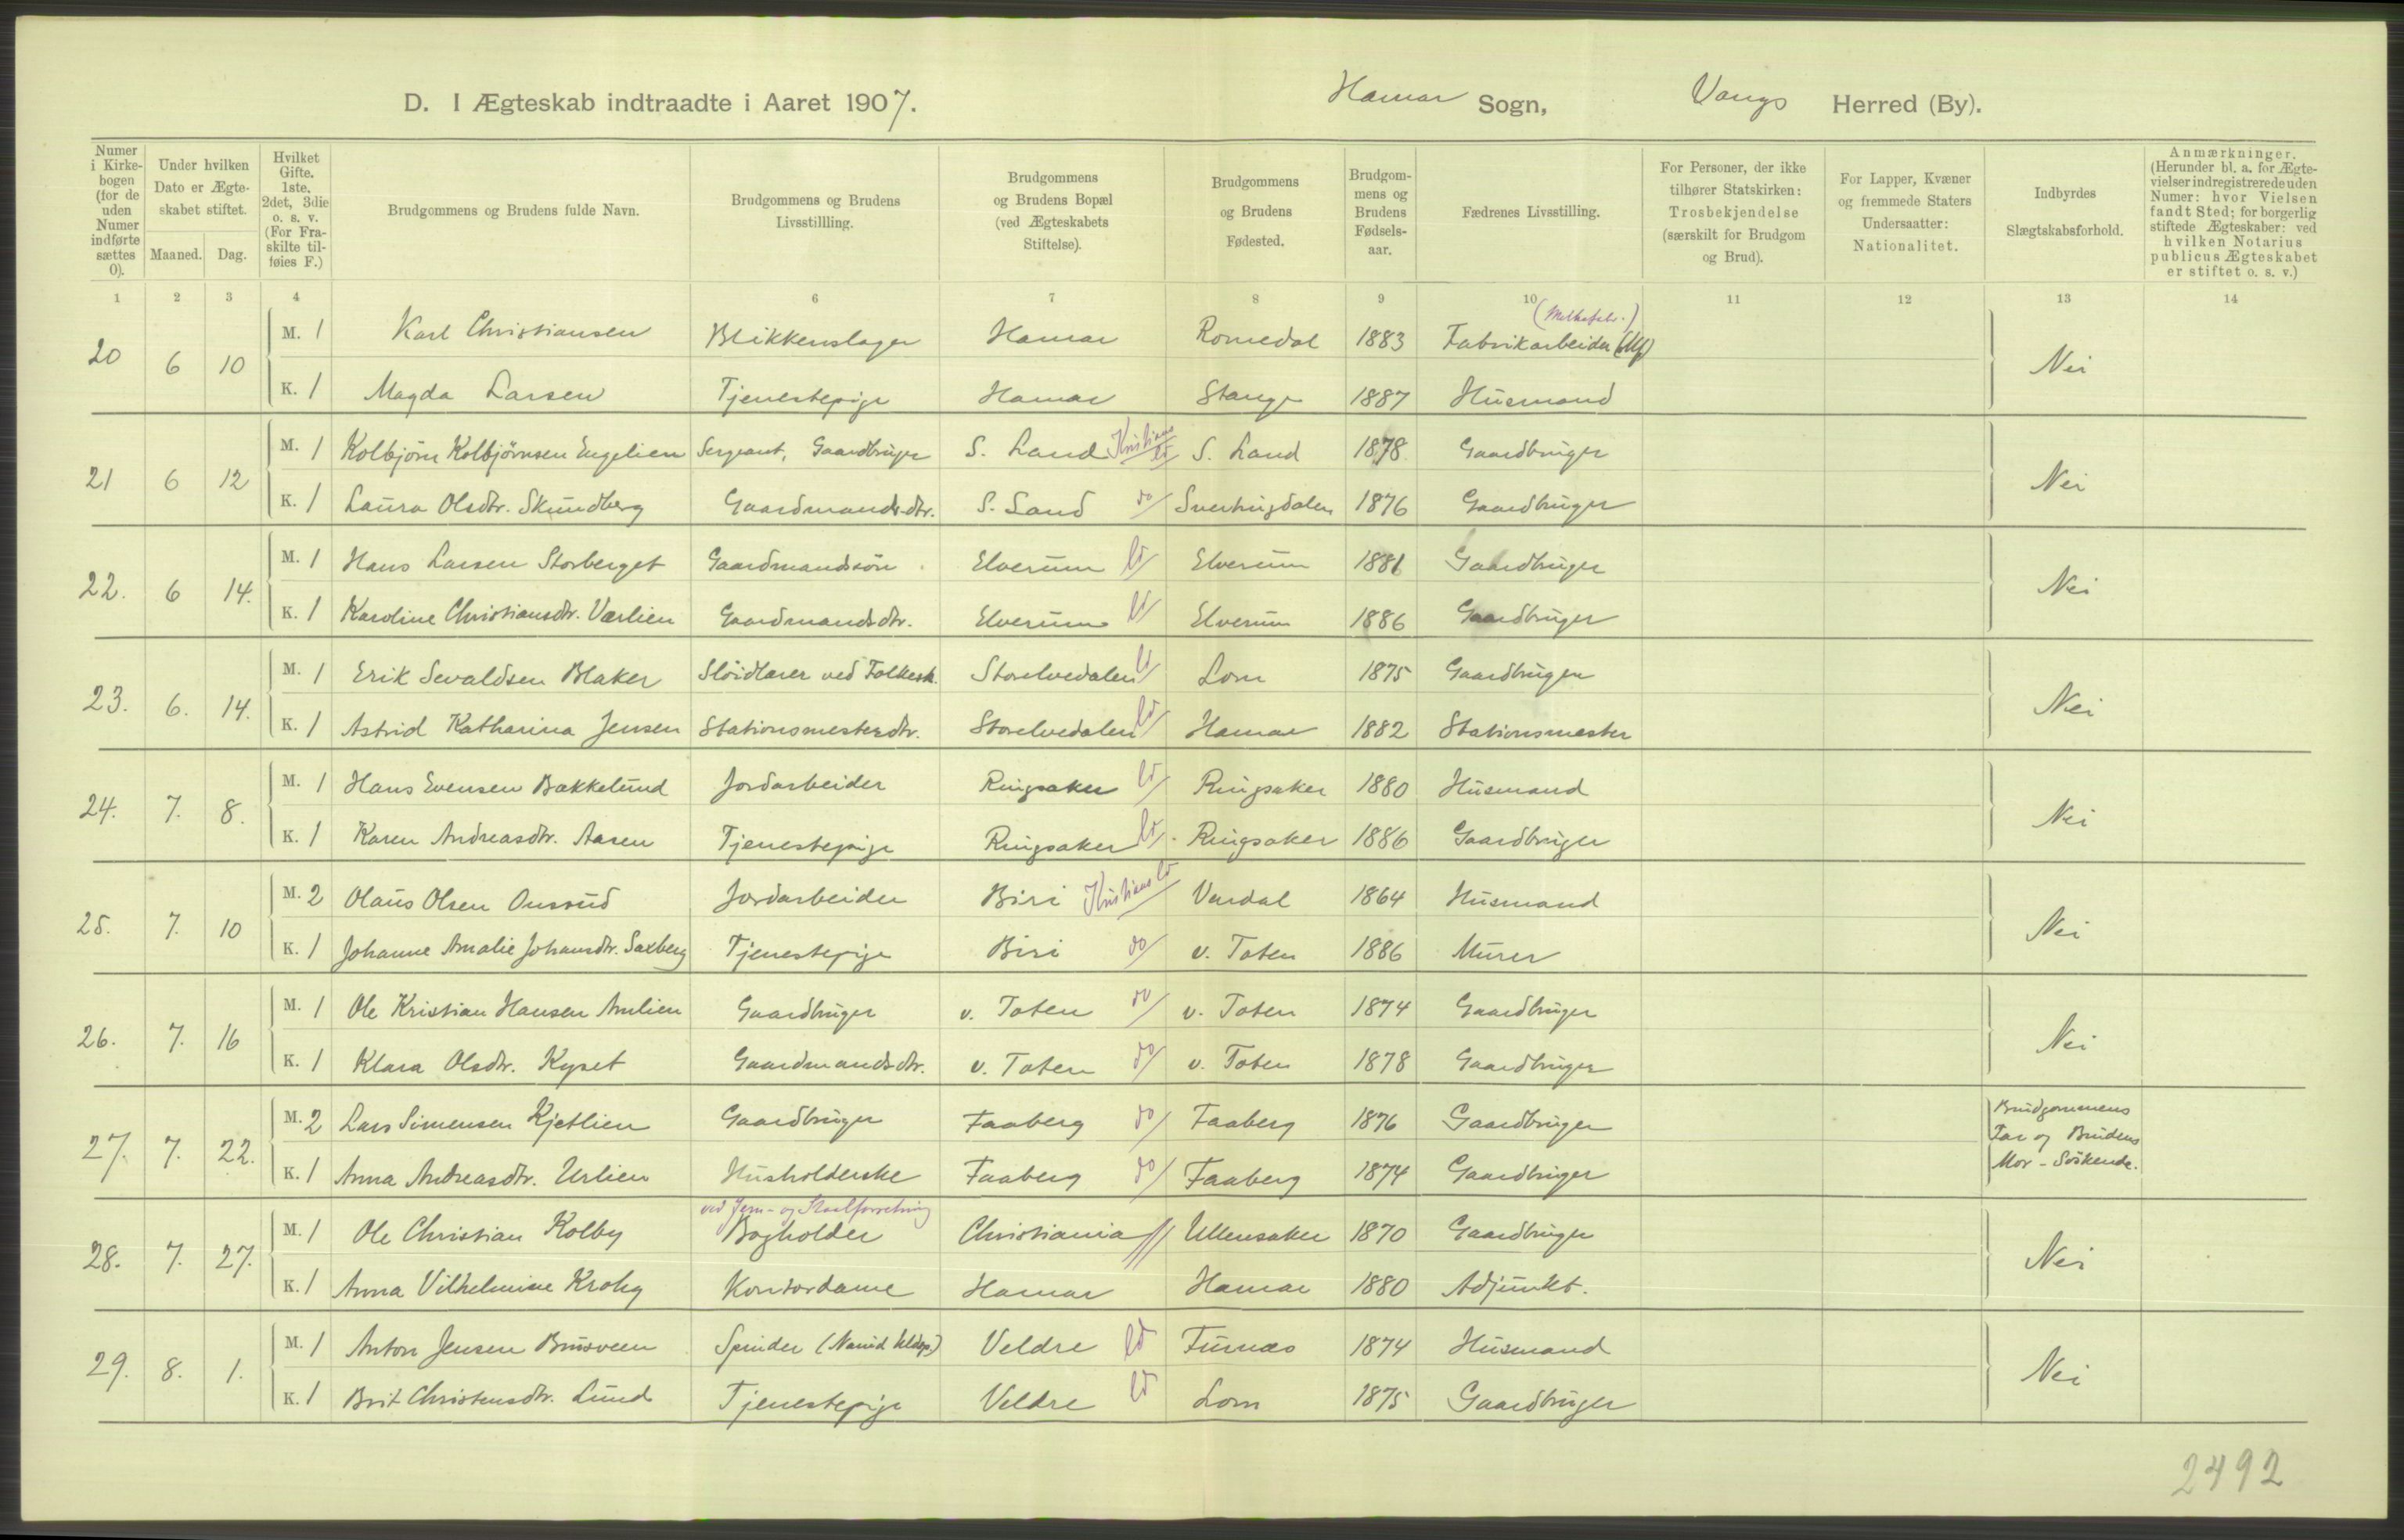 D. I Ægteskab indtraadte i Aaret 1907. Hamar Sogn, Vangs Herred (By).
Numer i Kirke-bogen (for de uden Numer indførte sættes 0). | Under hvilken Dato er Ægte-skabet stiftet. Maaned. Dag. | Hvilket Gifte. 1ste, 2det, 3die o. s. v. (For Fra-skilte til-føies F.) | Brudgommens og Brudens fulde Navn. | Brudgommens og Brudens Livsstillling. | Brudgommens og Brudens Bopæl (ved Ægteskabets Stiftelse). | Brudgommens og Brudens Fødested. | Brudgom-mens og Brudens Fødsels-aar. | Fædrenes Livsstilling. | For Personer, der ikke tilhører Statskirken: Trosbekjendelse (særskilt for Brudgom og Brud). | For Lapper, Kvæner og fremmede Staters Undersaatter: Nationalitet. | Indbyrdes Slægtskabsforhold. | Anmærkninger. (Herunder bl. a. for Ægte-vielser indregistrerede uden Numer: hvor Vielsen fandt Sted; for borgerlig stiftede Ægteskaber: ved hvilken Notarius publicus Ægteskabet er stiftet o. s. v.)
1 2 3 4 6 7 8 9 10 11 12 13 14
20 6 10 M. 1 Karl Christiansen Blikkenslager Hamar Romedal 1883 Fabrikarbeider Nei
K. 1 Magda Larsen Tjenestepige Hamar Stange 1887 Husmand
21 6 12 M. 1 Kolbjørn Kolbjørnsen Engelien Sergeant, Gaardbruger S. Land Kristians S. Land 1878 Gaardbruger Nei
K. 1 Laura Olsdtr. Skundberg Gaardmandsdtr. S. Land do 1876 Gaardbruger
22. 6 14. M. 1 Hans Larsen Storberget Gaardmandssön Elverum Elverum 1881 Gaardbruger Nei
K. 1 Karoline Christiansdtr. Værlien Gaardmandsdtr. Elverum Elverum 1886 Gaardbruger
23. 6. 14. M. 1 Erik Sevaldsen Blaker Slöidlærer ved Folkesk. Storelvedalen Lom 1875 Gaardbruger Nei
K. 1 Astrid Katharina Jensen Stationsmesterdtr. Storelvedalen Hamar 1882 Stationsmester
24. 7. 8. M. 1 Hans Evensen Bakkelund Jordarbeider Ringsaker Ringsaker 1880 Husmand Nei
K. 1 Karen Andreasdtr. Aasen Tjenestepige Ringsaker Ringsaker 1886 Gaardbruger
25. 7. 10 M. 2 Olaus Olsen Onsrud Jordarbeider Biri Kristians Vardal 1864 Husmand Nei
K. 1 Johanne Amalie Johansdtr. Saxberg Tjenestepige Biri do v. Toten 1886 Murer
26. 7. 16 M. 1 Ole Kristian Hansen Amlien Gaardbruger v. Toten do v. Toten 1874 Gaardbruger Nei
K. 1 Klara Olsdtr. Kyset Gaardmandsdtr. v. Toten do v. Toten 1878 Gaardbruger
27. 7. 22. M. 2 Lars Simensen Kjetlien Gaardbruger Faaberg do Faaberg 1876 Gaardbruger Brudgommens Far og Brudens Mor - Söskende.
K. 1 Anna Andreasdtr. Urlien Husholderske Faaberg do Faaberg 1874 Gaardbruger
ved Jern- og Staalforretning
28. 7. 27. M. 1 Ole Christian Kolby Bogholder Christiania Ullensaker 1870 Gaardbruger Nei
K. 1 Anna Vilhelmine Krohg Kontordame Hamar Hamar 1880 Adjunkt.
29. 8. 1. M. 1 Anton Jensen Brusveen Spinder Veldre Furnes 1874 Husmand Nei
K. 1 Brit Christensdtr. Lund Tjenestepige Veldre Lom 1875 Gaardbruger
2492